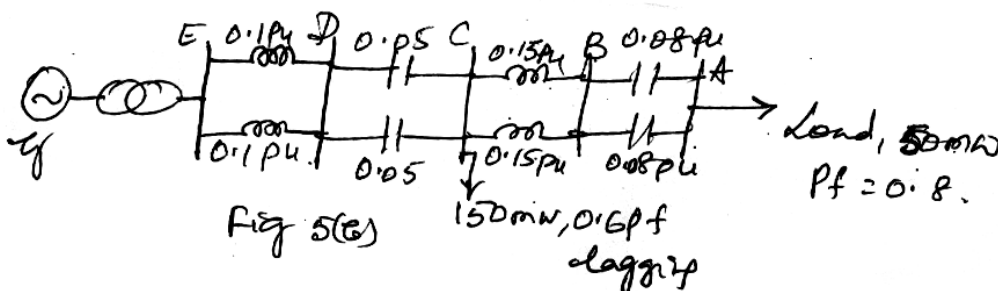 E 0.1pu D 0.05 C 0.15pu B 0.08pu A
G
0.1pu. 0.05 0.15pu 0.08pu
Load, 50mw
Pf = 0.8.
150mw, 0.6pf
lagging
Fig 5(b)